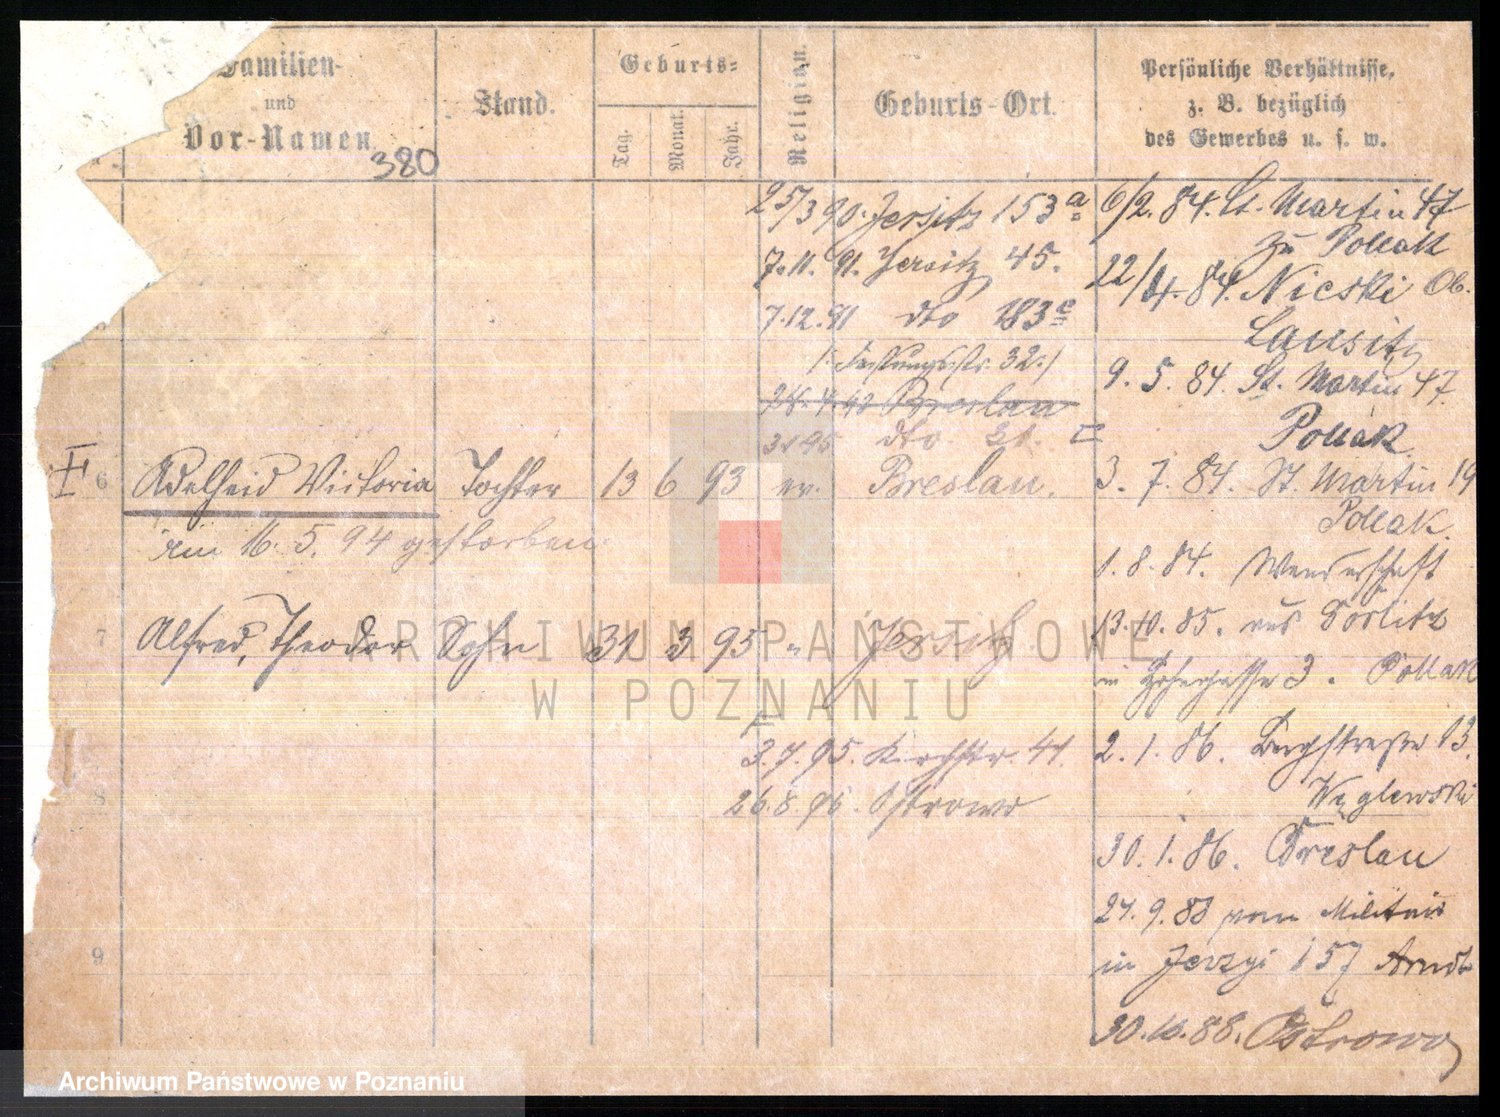 Familien-
und
Vor-Namen.
380
Stand.
Geburts-
Tag.
Monat.
Jahr.
Religion.
Geburts-Ort.
Persönliche Verhältnisse,
z. B. bezüglich
des Gewerbes u. s. w.
25/3 90. Jersitz 153a
7.11. 91. Jersitz 45.
7.12.91 dto 183c
24.4.92 Breslau
dto
6 Adelheid Victoria Tochter 13 6 93 ev. Breslau.
am 16. 5. 94 gestorben
7 Alfred, Theodor Sohn 31 3 95 " Jersitz
3.7.95. Kirchstr. 41.
8
26.8.96. Ostrowo
9
6/2. 84. St. Martin 47
zu Pollak
22/4. 84. Nieski Ob.
Lausitz
9. 5. 84. St. Martin 47
Pollak
3. 7. 84. St. Martin 19
Pollak.
1. 8. 84. Wanderschaft
13.10. 85. aus Görlitz
in 3. Pollak
2. 1. 86. Bergstraße 13.
Węglewski
30. 1. 86. Breslau
27. 9. 88 vom Militair
in Jerzyi 157 Arndt
30.10.88. Ostrowo
ARCHIWUM PAŃSTWOWE
W POZNANIU
Archiwum Państwowe w Poznaniu